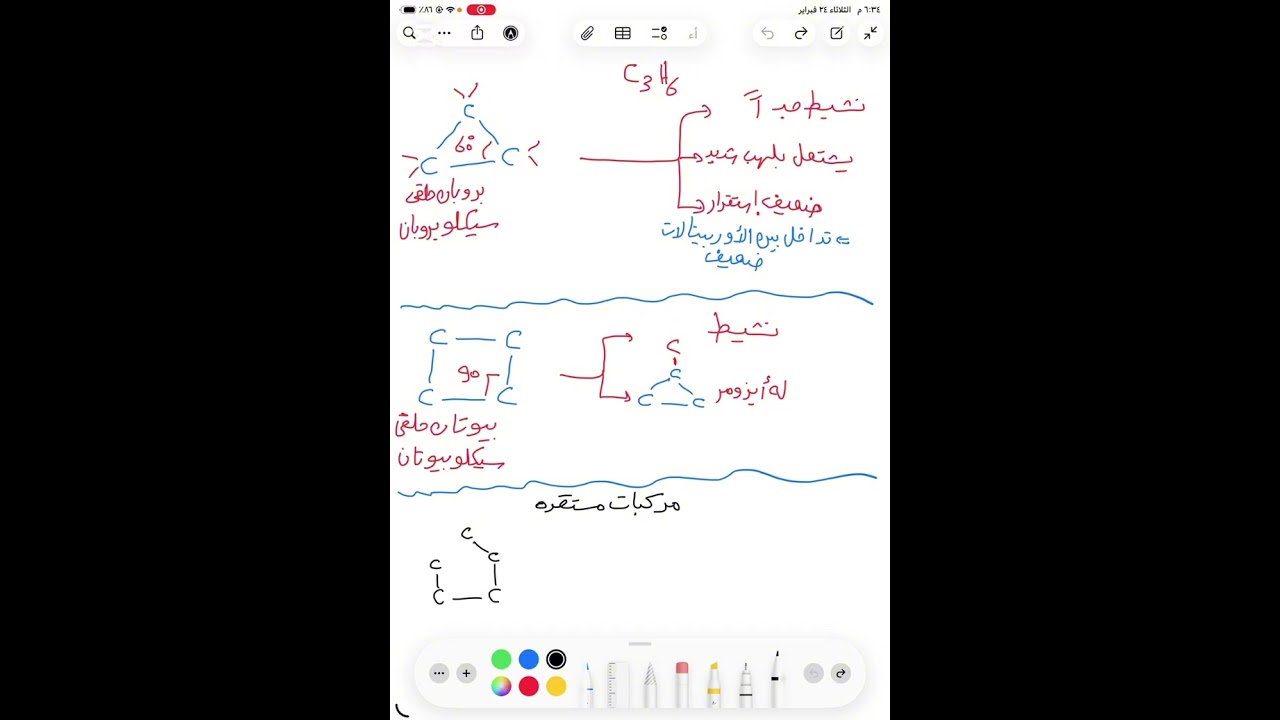 ٦:٣٤ م الثلاثاء ٢٤ فبراير
٨٦٪
أء
C3H6
نشيط جداً
يشتعل بلهب شديد
ضعيف إستقرار
= تداخل بين الأوربيتالات
ضعيف
C
60°
C C
بروبان حلقي
سيكلوبروبان
نشيط
له أيزومر
C
C
C C
C C
90
C C
بيوتان حلقي
سيكلوبيوتان
مركبات مستقره
C
C C
C C